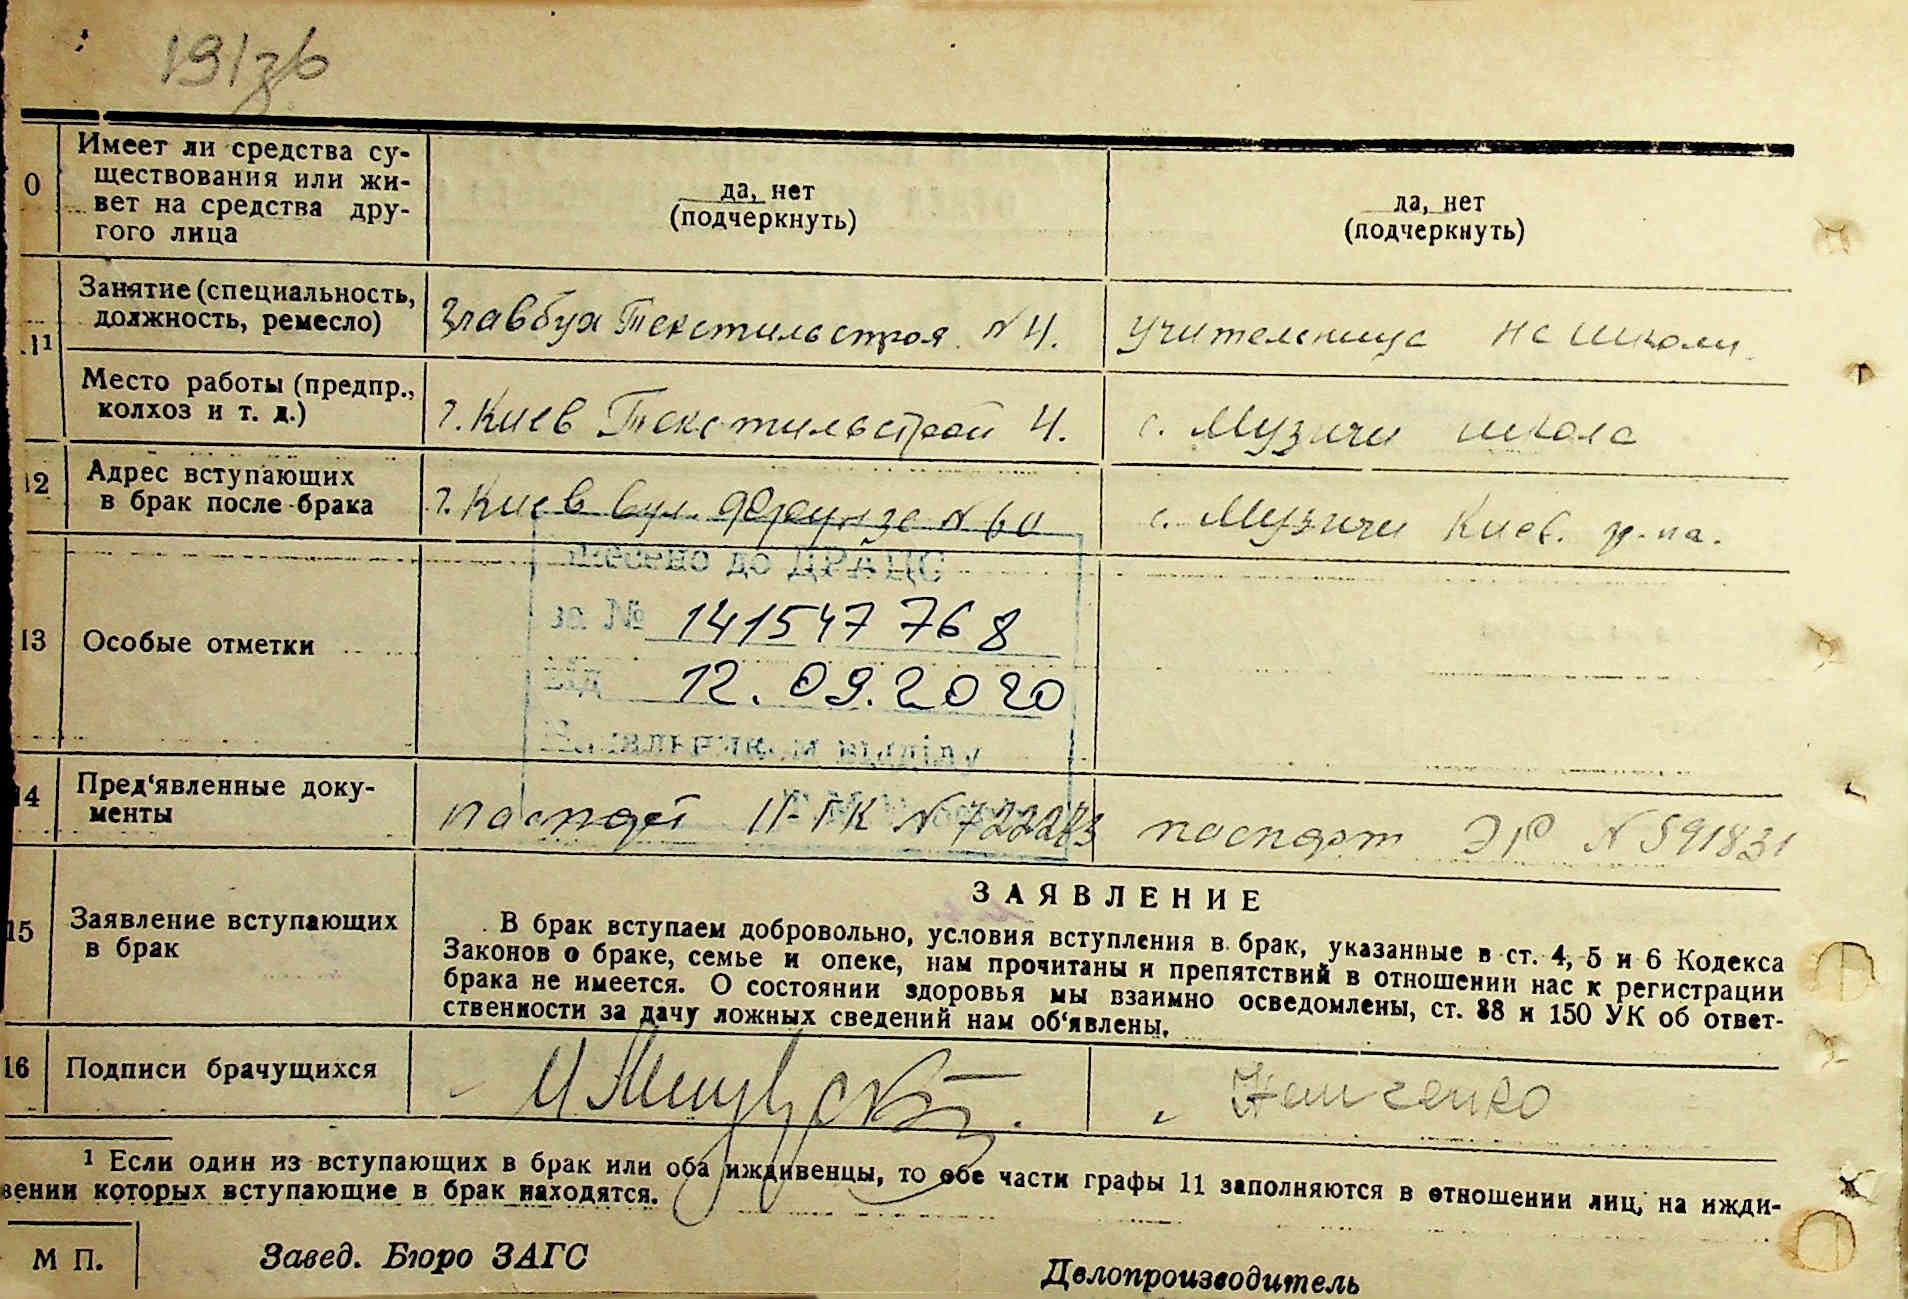 191зв
0
Имеет ли средства су-
ществования или жи-
вет на средства дру-
гого лица
да, нет
(подчеркнуть)
да, нет
(подчеркнуть)
11¹
Занятие (специальность,
должность, ремесло)
Главбух Текстильстроя N 4.
учительница
Место работы (предпр.,
колхоз и т. д.)
г. Киев Текстильстрой 4.
с. Музичи школа
12
Адрес вступающих
в брак после брака
г. Киев вул. Фрунзе N 60
с. Музичи Киев. р-на.
13
Особые отметки
Внесено до ДРАЦС
за № 141547768
Від 12.09.2020
відділу
14
Пред‘явленные доку-
менты
паспорт N 722283
паспорт ЭР N 591831
15
Заявление вступающих
в брак
ЗАЯВЛЕНИЕ
В брак вступаем добровольно, условия вступления в брак, указанные в ст. 4, 5 и 6 Кодекса
Законов о браке, семье и опеке, нам прочитаны и препятствий в отношении нас к регистрации
брака не имеется. О состоянии здоровья мы взаимно осведомлены, ст. 88 и 150 УК об ответ-
ственности за дачу ложных сведений нам об‘явлены.
16
Подписи брачущихся
¹ Если один из вступающих в брак или оба иждивенцы, то обе части графы 11 заполняются в отношении лиц, на ижди-
вении которых вступающие в брак находятся.
М П.
Завед. Бюро ЗАГС
Делопроизводитель